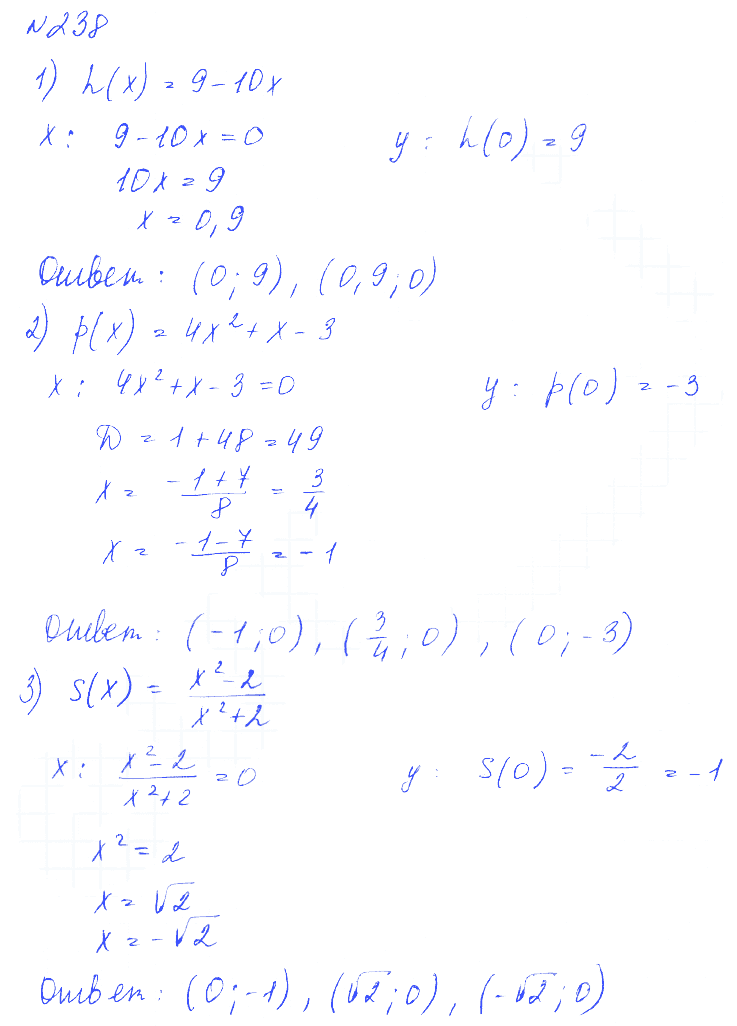 N238
1) h(x) = 9 - 10x
x: 9 - 10x = 0 y: h(0) = 9
10x = 9
x = 0,9
Ответ: (0; 9), (0,9; 0)
2) p(x) = 4x² + x - 3
x: 4x² + x - 3 = 0 y: p(0) = -3
D = 1 + 48 = 49
x = (-1 + 7)/8 = 3/4
x = (-1 - 7)/8 = -1
Ответ: (-1; 0), (3/4; 0), (0; -3)
3) S(x) = (x² - 2)/(x² + 2)
x: (x² - 2)/(x² + 2) = 0 y: S(0) = -2/2 = -1
x² = 2
x = √2
x = -√2
Ответ: (0; -1), (√2; 0), (-√2; 0)